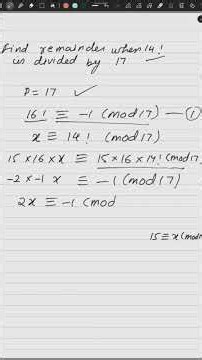 Find remainder when 14!
is divided by 17 ✓
P = 17 ✓
16! ≡ -1 (mod 17) — ①
x ≡ 14! (mod 17)
15 × 16 × x ≡ 15 × 16 × 14! (mod 17)
-2 × -1 x ≡ -1 (mod 17)
2x ≡ -1 (mod
15 ≡ x (mod